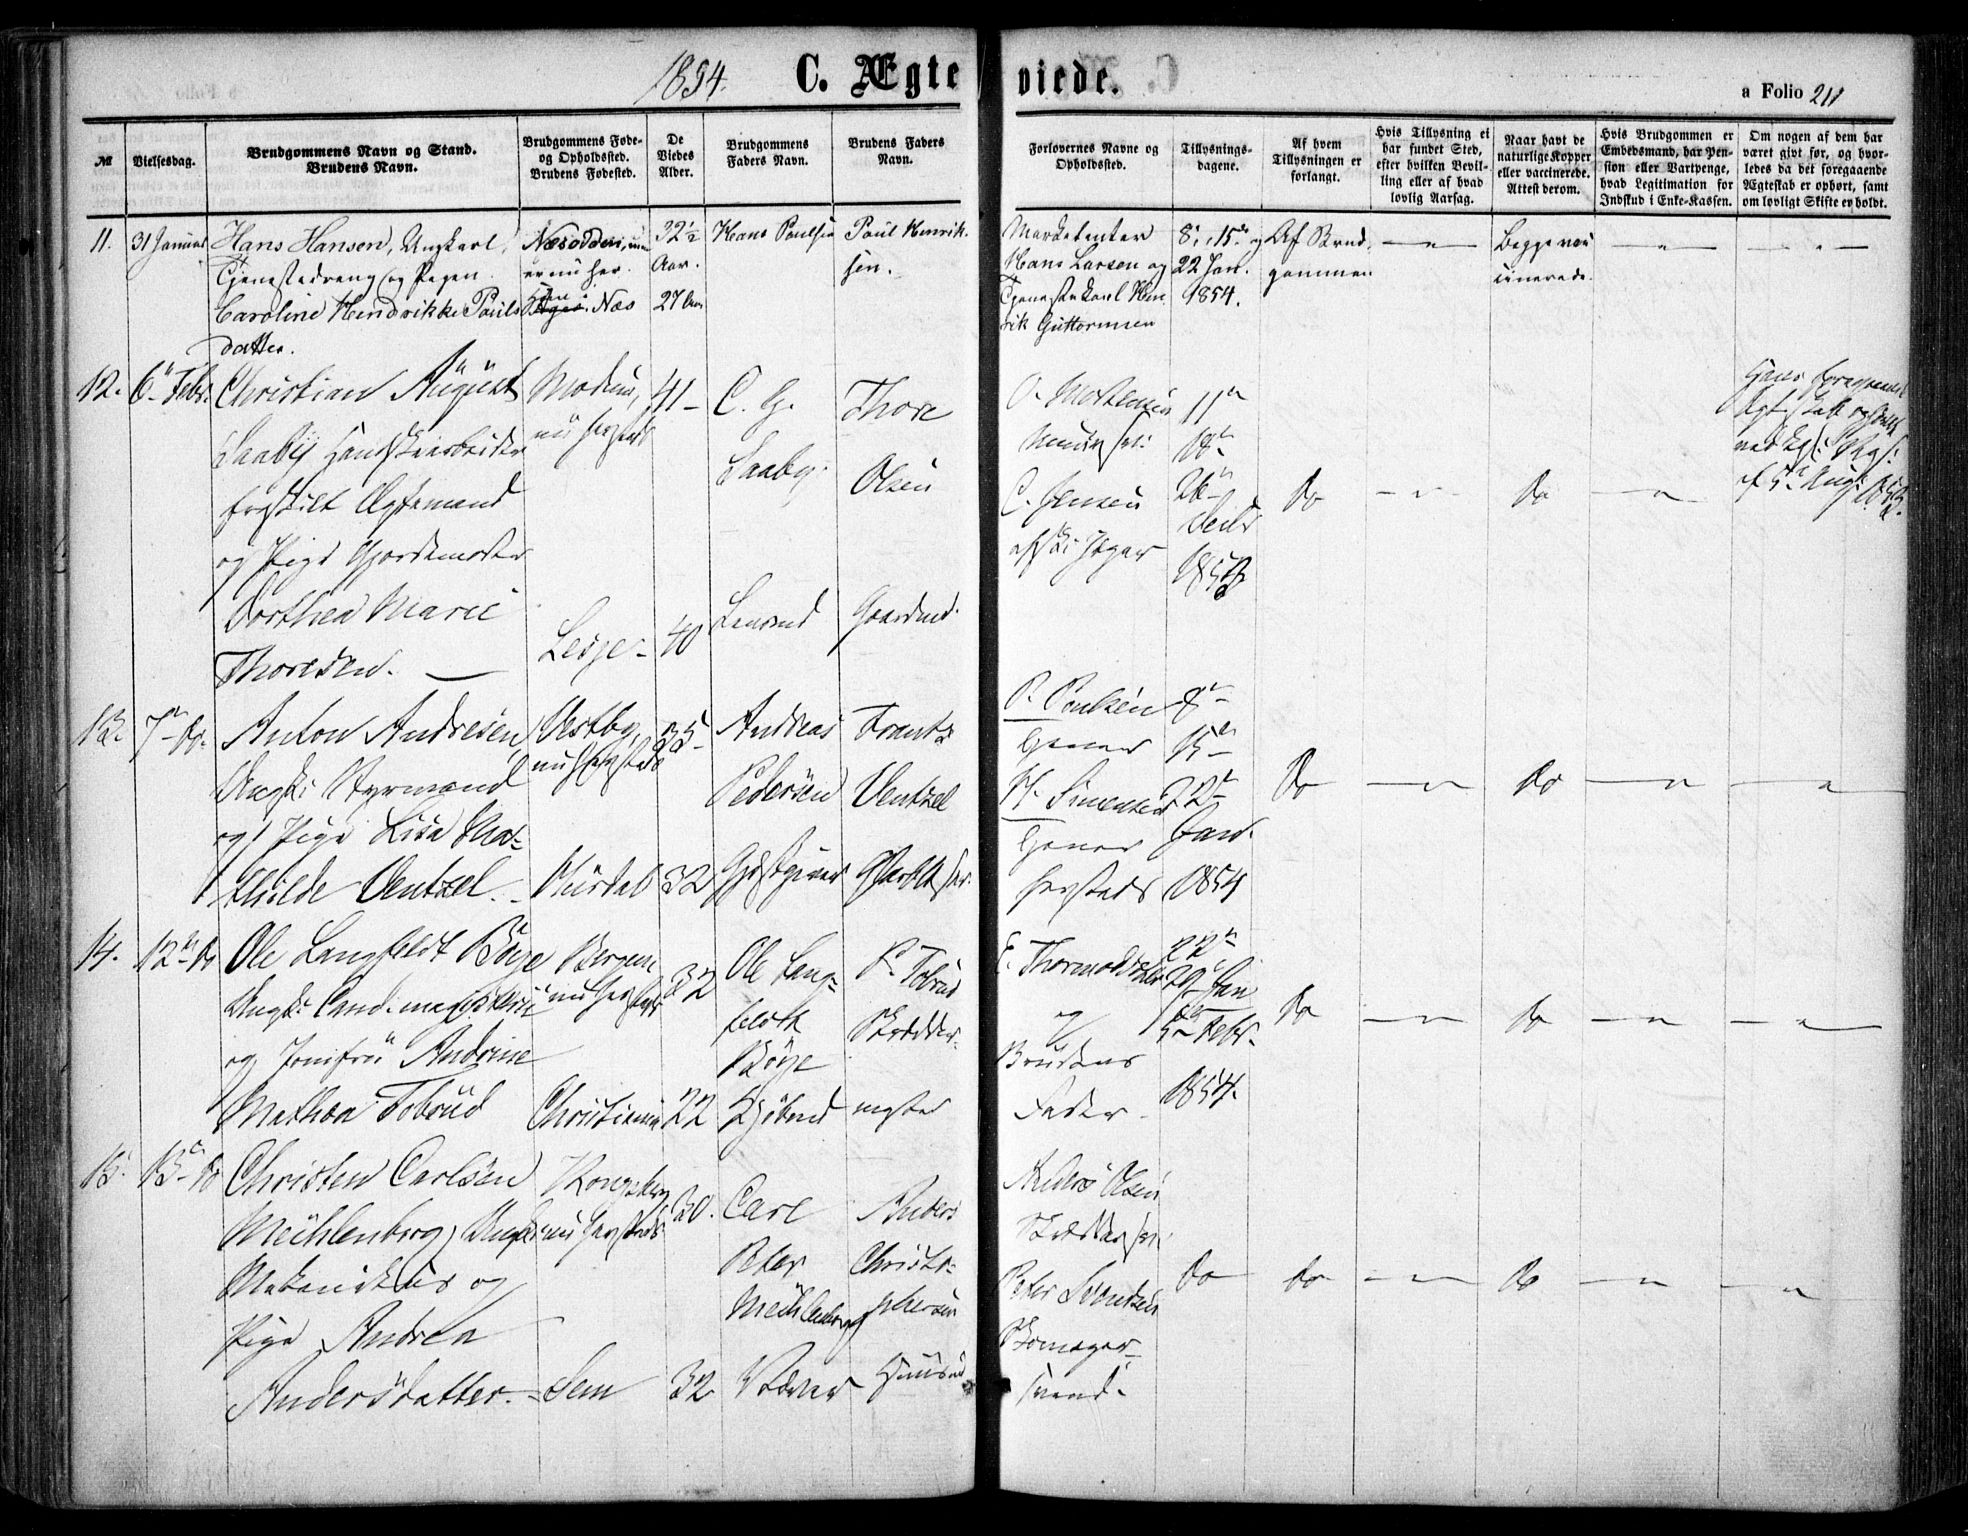 1854. C. Ægte viede. a Folio 211
№
Vielsesdag.
Brudgommens Navn og Stand.
Brudens Navn.
Brudgommens Føde-
og Opholdssted.
Brudens Fødested.
De
Viedes
Alder.
Brudgommens
Faders Navn.
Brudens Faders
Navn.
Forlovernes Navne og
Opholdssted.
Tillysnings-
dagene.
Af hvem
Tillysningen er
forlangt.
Hvis Tillysning ei
har fundet Sted,
efter hvilken Bevil-
ling eller af hvad
lovlig Aarsag.
Naar havt de
naturlige Kopper
eller vaccinerede.
Attest derom.
Hvis Brudgommen er
Embedsmand, har Pen-
sion eller Vartpenge,
hvad Legitimation for
Indskud i Enke-Kassen.
Om nogen af dem har
været givt før, og hvor-
ledes da det foregaaende
Ægteskab er ophørt, samt
om lovligt Skifte er holdt.
11. 31 Januar
Hans Hansen, Ungkarl,
Tjenestedreng og Pigen
Caroline Hendrikke Pauls
datter.
Næsodden,
er nu her.
Næs
32½
Aar.
27
Hans Paulsen
Paul Henrik-
sen.
Marketenter
Hans Larsen og
Tjenestekarl Hen
rik Guttormsen
8, 15 og
22 Jan.
1854.
Af Brud
gommen
Begge vac
cinerede
12. 6 Febr.
Christian August
Saaby Handskearbeider
fraskilt Ægtemand
og Pige Gjordemoder
Dorthea Marie
Thoresen.
Modum,
nu hersteds
Lesje
41
40
C. G.
Saaby
Lensmd
Thore
Olsen
Gaardmd.
O. Mortensen
C. Jensen
afsk: Jæger
11
18
26
Decbr
1853
Do
Do
Hans foregaaende
Ægteskab ophævet
ved
af 5 Aug: 1853.
13. 7 Do.
Anton Andresen
Ungk: Styrmand
og Pige Lisa Mat-
thilde Wentzel
Vestby,
nu hersteds
Hurdal
35
32
Andreas
Pedersen
Gjæstgiver
Frantz
Wentzel
P. Poulsen
H. Simensen
hersteds
8
15
22
Jan.
1854
Do
Do
14. 12 Do
Ole Langfeldt Böye
Ungk: Cand. magisterii
og Jomfru Andrine
Mathea Tobrud
Bergen
nu hersteds
Christiania
32
22
Ole Lang-
feldt
Böye
Kjöbmd
P. Tobrud
Skrædder-
mester
E. Thormodsæter
og
Brudens
Fader
22
29 Jan
5 Febr.
1854.
Do
Do
15. 13 Do
Christen Carlsen
Mühlenberg, Ungk:
Mekanikus og
Pige Andrea
Andersdatter
Kongsberg
nu hersteds
Sem
30.
32
Carl
Peter
Mühlenberg
Anders
Christo-
phersen
Huusmd
Anders Olsen
Skrædder
Peter Svendsen
Skomager-
svend.
Do
Do
Do